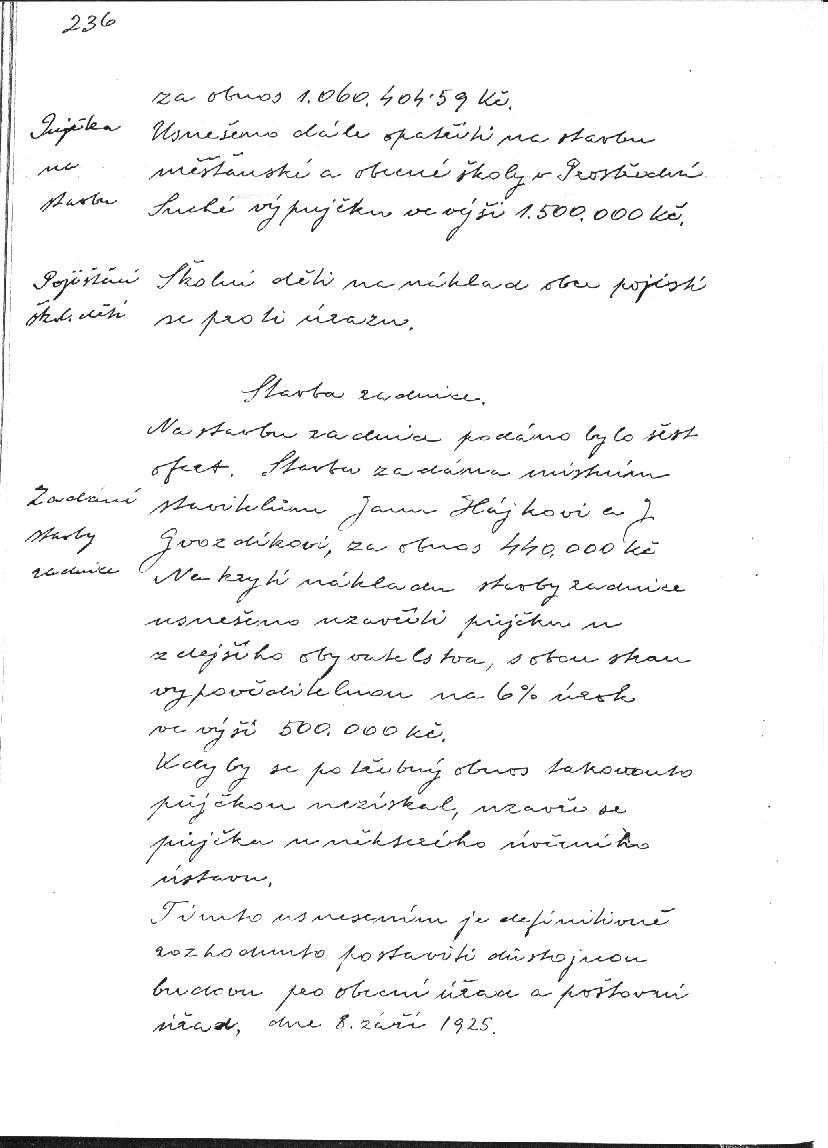 236
za obnos 1.060.404·59 Kč.
Půjčka
na
stavbu
Usnešeno dále opatřiti na stavbu
měšťanské a obecné školy v Prostřední
Suché výpujčku ve výši 1.500.000 Kč.
Pojištění
škol. dětí
Školní děti na náklad obce pojistí
se proti úrazu.
Stavba radnice.
Na stavbu radnice podáno bylo šest
ofert. Stavba zadána místním
Zadání
stavby
radnice
stavitelům Janu Hájkovi a J.
Gvozdíkovi, za obnos 440.000 Kč
Na krytí nákladu stavby radnice
usnešeno uzavříti půjčku u
zdejšího obyvatelstva, s obou stran
vypověditelnou na 6% úrok
ve výši 500.000 Kč.
Kdyby se potřebný obnos takovouto
půjčkou nezískal, uzavře se
půjčka u některého úvěrního
ústavu.
Tímto usnesením je definitivně
rozhodnuto postaviti důstojnou
budovu pro obecní úřad a poštovní
úřad, dne 8. září 1925.